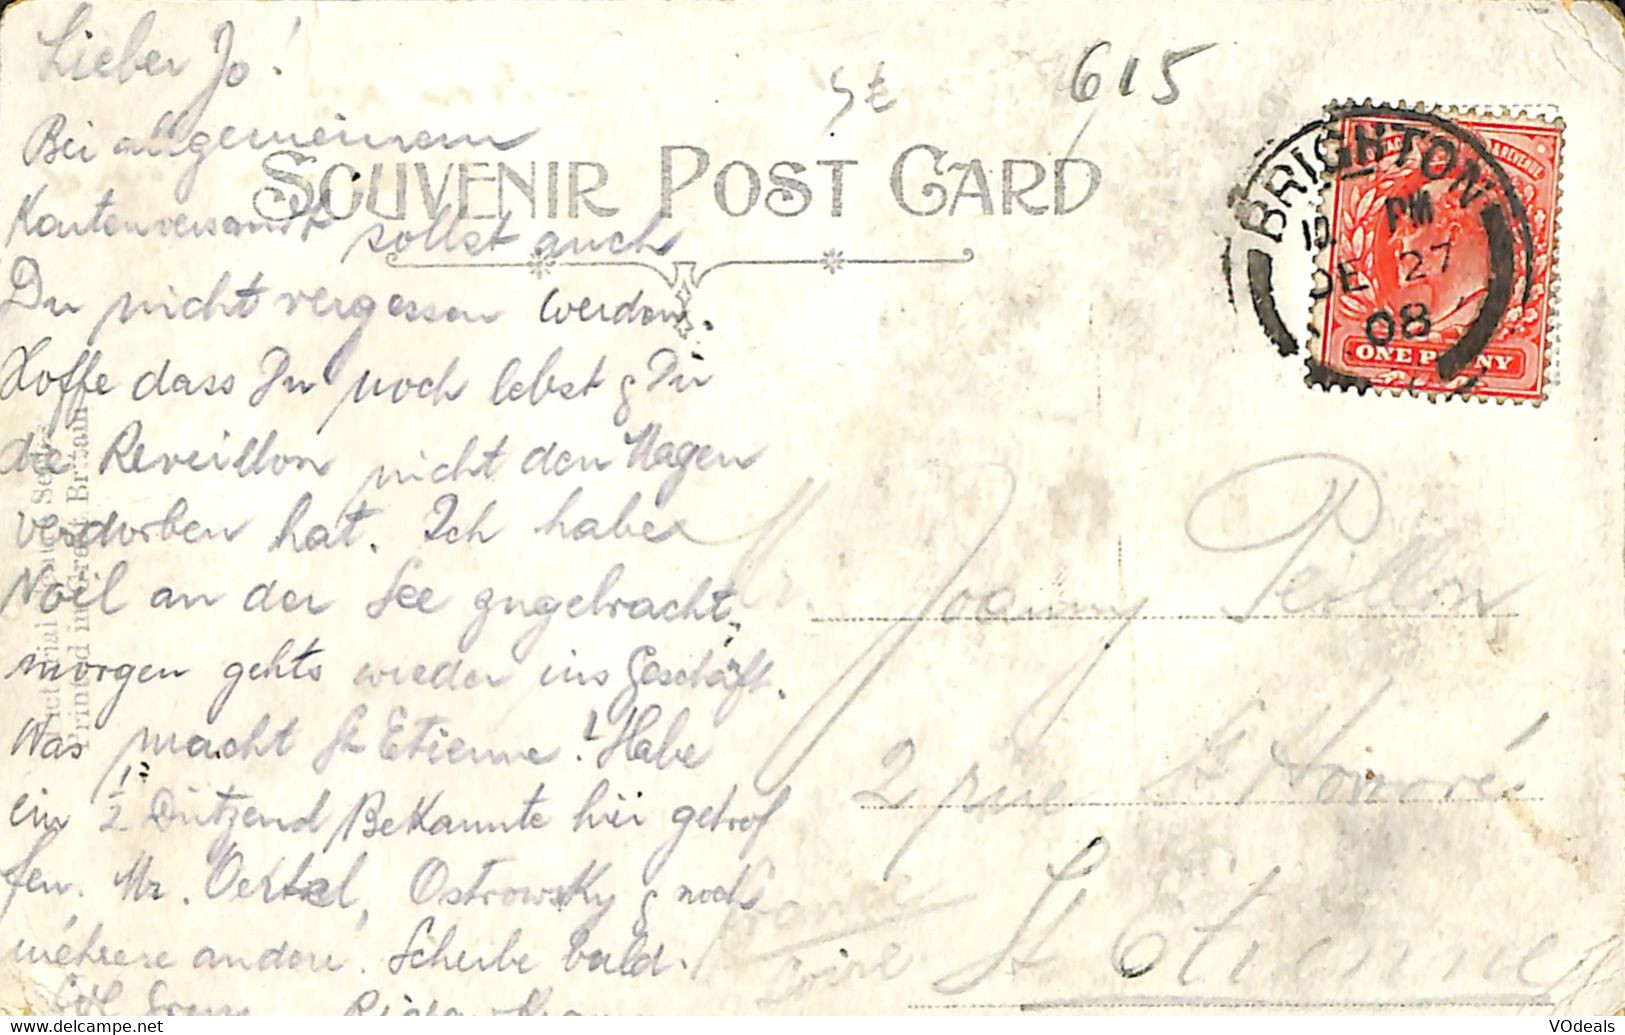 Lieber Jo!
Bei allgemeinem
Kartenversandt sollst auch
Du nicht vergessen werden.
Hoffe dass Du noch lebst & Dir
die Reveillon nicht den Magen
verdorben hat. Ich habe
Noël an der See zugebracht,
morgen gehts wieder ins Geschäft.
Was macht St Etienne! Habe
ein 1/2 Dutzend Bekannte hier getrof
fen. Mr. Oertel, Ostrowsky & noch
mehrere andere. Schreibe bald.
SOUVENIR POST CARD
St
615
BRIGHTON
10 PM
DE 27
08
POSTAGE & REVENUE
ONE PENNY
Printed in Great Britain
Mr. Joanny Peillon
2 rue St Honoré
St Etienne
France
Loire
VOdeals
www.delcampe.net